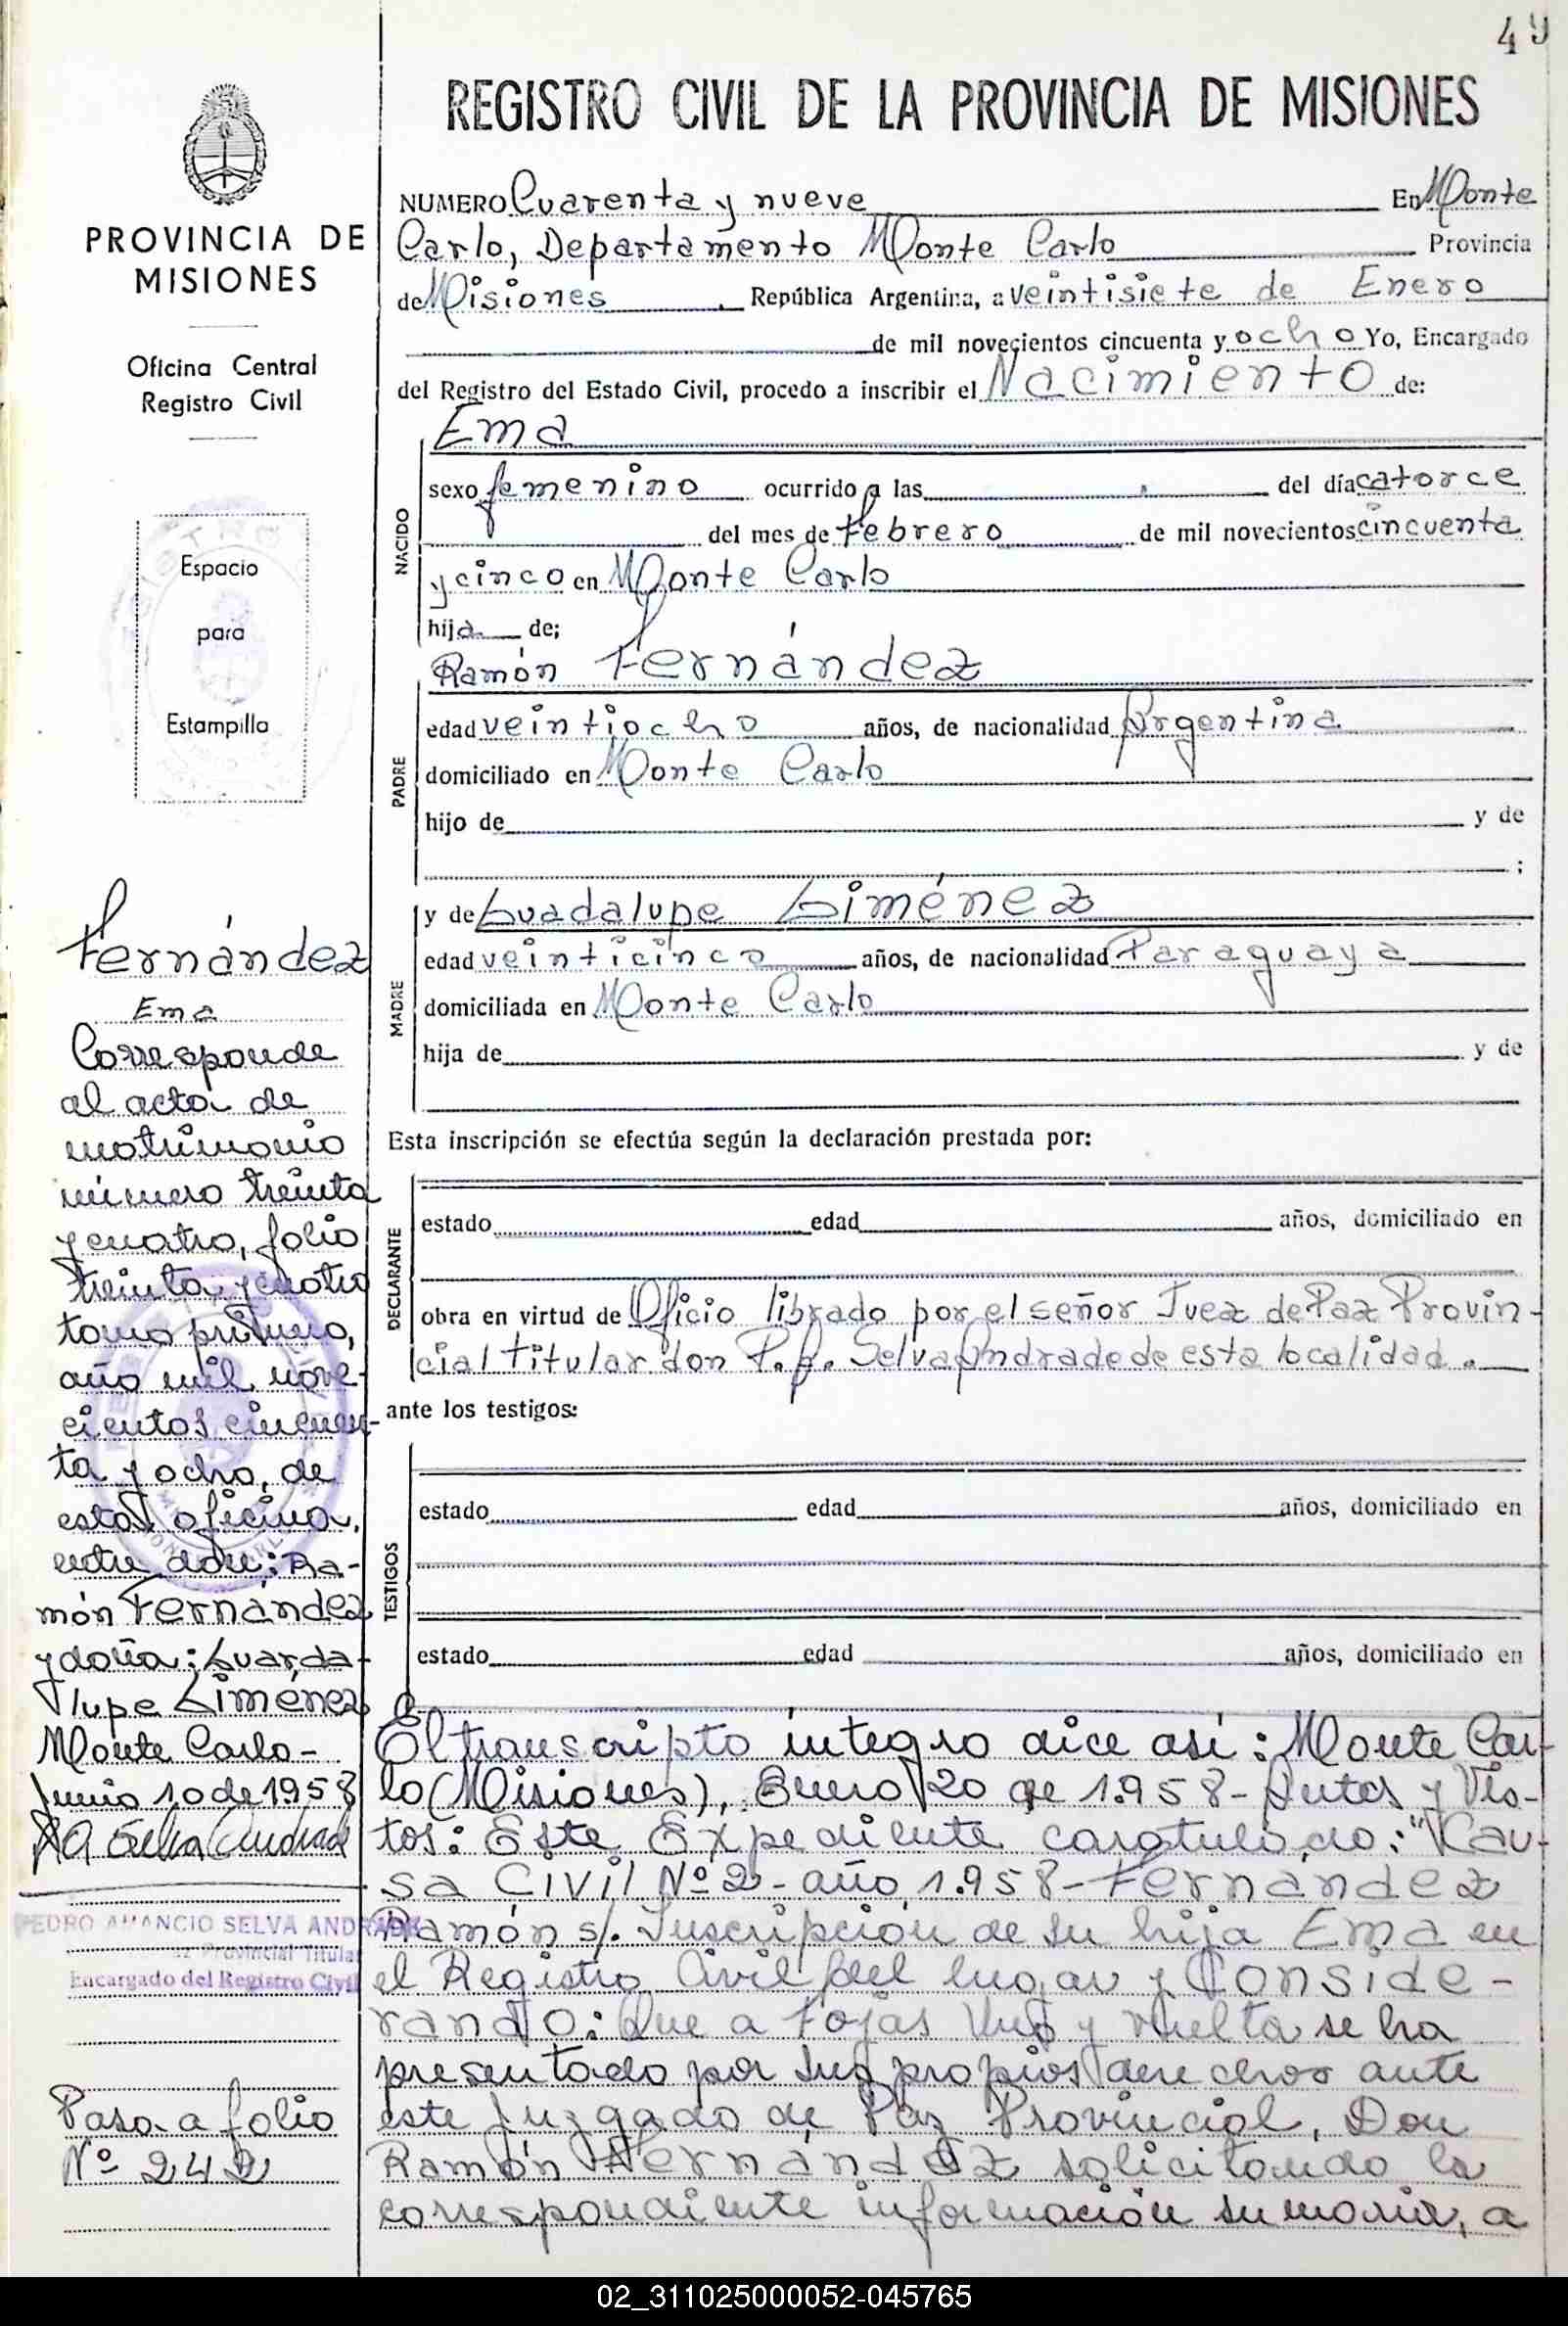 49
REGISTRO CIVIL DE LA PROVINCIA DE MISIONES
PROVINCIA DE
MISIONES
Oficina Central
Registro Civil
Espacio
para
Estampilla
Fernández
Ema
Corresponde
al acta de
matrimonio
número treinta
y cuatro, folio
treinta y cuatro
tomo primero,
año mil nove-
cientos cincuen-
ta y ocho, de
esta oficina,
entre don: Ra-
món Fernández
y doña: Guarda-
lupe Giménez
Monte Carlo-
Junio 10 de 1958
PA Selva Andrade
PEDRO AMANCIO SELVA ANDRADE
Provincial Titular
Encargado del Registro Civil
Paso a folio
Nº 242
NUMERO Cuarenta y nueve En Monte
Carlo, Departamento Monte Carlo Provincia
de Misiones, República Argentina, a veintisiete de Enero
de mil novecientos cincuenta y ocho Yo, Encargado
del Registro del Estado Civil, procedo a inscribir el Nacimiento de:
NACIDO
Ema
sexo femenino ocurrido a las del día catorce
del mes de Febrero de mil novecientos cincuenta
y cinco en Monte Carlo
hija de;
PADRE
Ramón Fernández
edad veintiocho años, de nacionalidad Argentina
domiciliado en Monte Carlo
hijo de y de
;
MADRE
y de Guadalupe Giménez
edad veinticinco años, de nacionalidad Paraguaya
domiciliada en Monte Carlo
hija de y de
Esta inscripción se efectúa según la declaración prestada por:
DECLARANTE
estado edad años, domiciliado en
obra en virtud de Oficio librado por el señor Juez de Paz Provin-
cial titular don P.A. Selva Andrade de esta localidad.
ante los testigos:
TESTIGOS
estado edad años, domiciliado en
estado edad años, domiciliado en
El transcripto integro dice así: Monte Car-
lo (Misiones), Enero 20 de 1.958- Autos y Vis-
tos: Este Expediente caratulado: "Cau-
sa Civil Nº 2- año 1.958- Fernández
Ramón s/. Inscripción de su hija Ema en
el Registro Civil del lugar y Conside-
rando: Que a Fojas Uno y vuelta se ha
presentado por sus propios derechos ante
este Juzgado de Paz Provincial, Don
Ramón Fernández solicitando la
correspondiente información sumaria, a
02_311025000052-045765